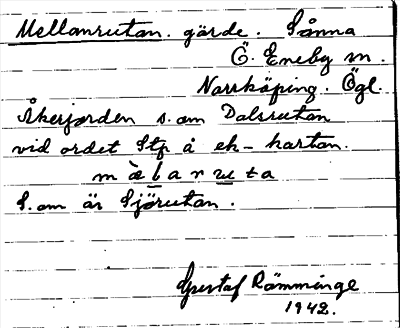 Mellanrutan. gärde. Sånna
Ö. Eneby sn.
Norrköping. Ögl.
Åkerjorden s. om Dalsrutan
vid ordet Stp å ek-kartan.
mèlanruta
S. om är Sjörutan.
Gustaf Rämminge
1942.